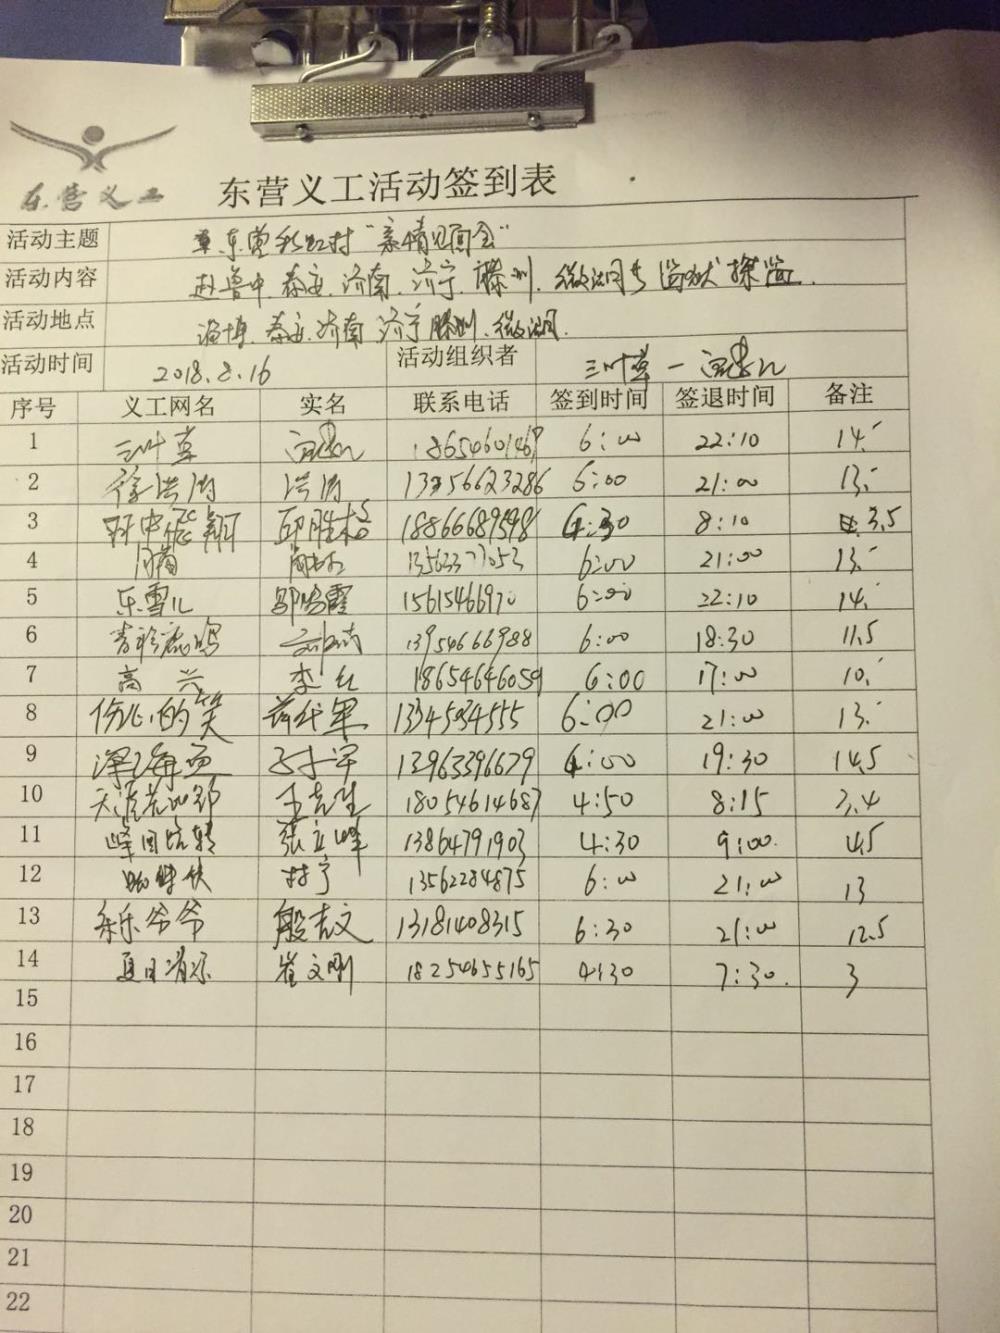 东营义工
东营义工活动签到表
活动主题 东营彩虹村"亲情见面会"
活动内容 赴鲁中、泰安、济南、济宁、滕州、微湖 监狱探监.
活动地点 淄博、泰安、济南、济宁、滕州、微湖.
活动时间 2018.8.16 活动组织者 三叶草一
序号 义工网名 实名 联系电话 签到时间 签退时间 备注
1 三叶草 18654601467 6:00 22:10 14.
2 徐洪涛 洪涛 6:00 21:00 13.
3 邱胜 4:30 8:10 3.5
4 13562377053 6:00 21:00 13.
5 乐雪儿 15615466970 6:00 22:10 14.
6 13954666988 6:00 18:30 11.5
7 高兴 李 18654646059 6:00 17:00 10.
8 你心的笑 13345034555 6:00 21:00 13.
9 深海 13963396679 :00 19:30 14.5
10 18054614687 4:50 8:15 3.4
11 峰回路转 张立峰 13864791903 4:30 9:00 4.5
12 蜘蛛侠 13562284875 6:00 21:00 13
13 乐爷爷 殷吉文 13181408315 6:30 21:00 12.5
14 夏日清凉 崔文刚 18254655165 4:30 7:30. 3
15
16
17
18
19
20
21
22